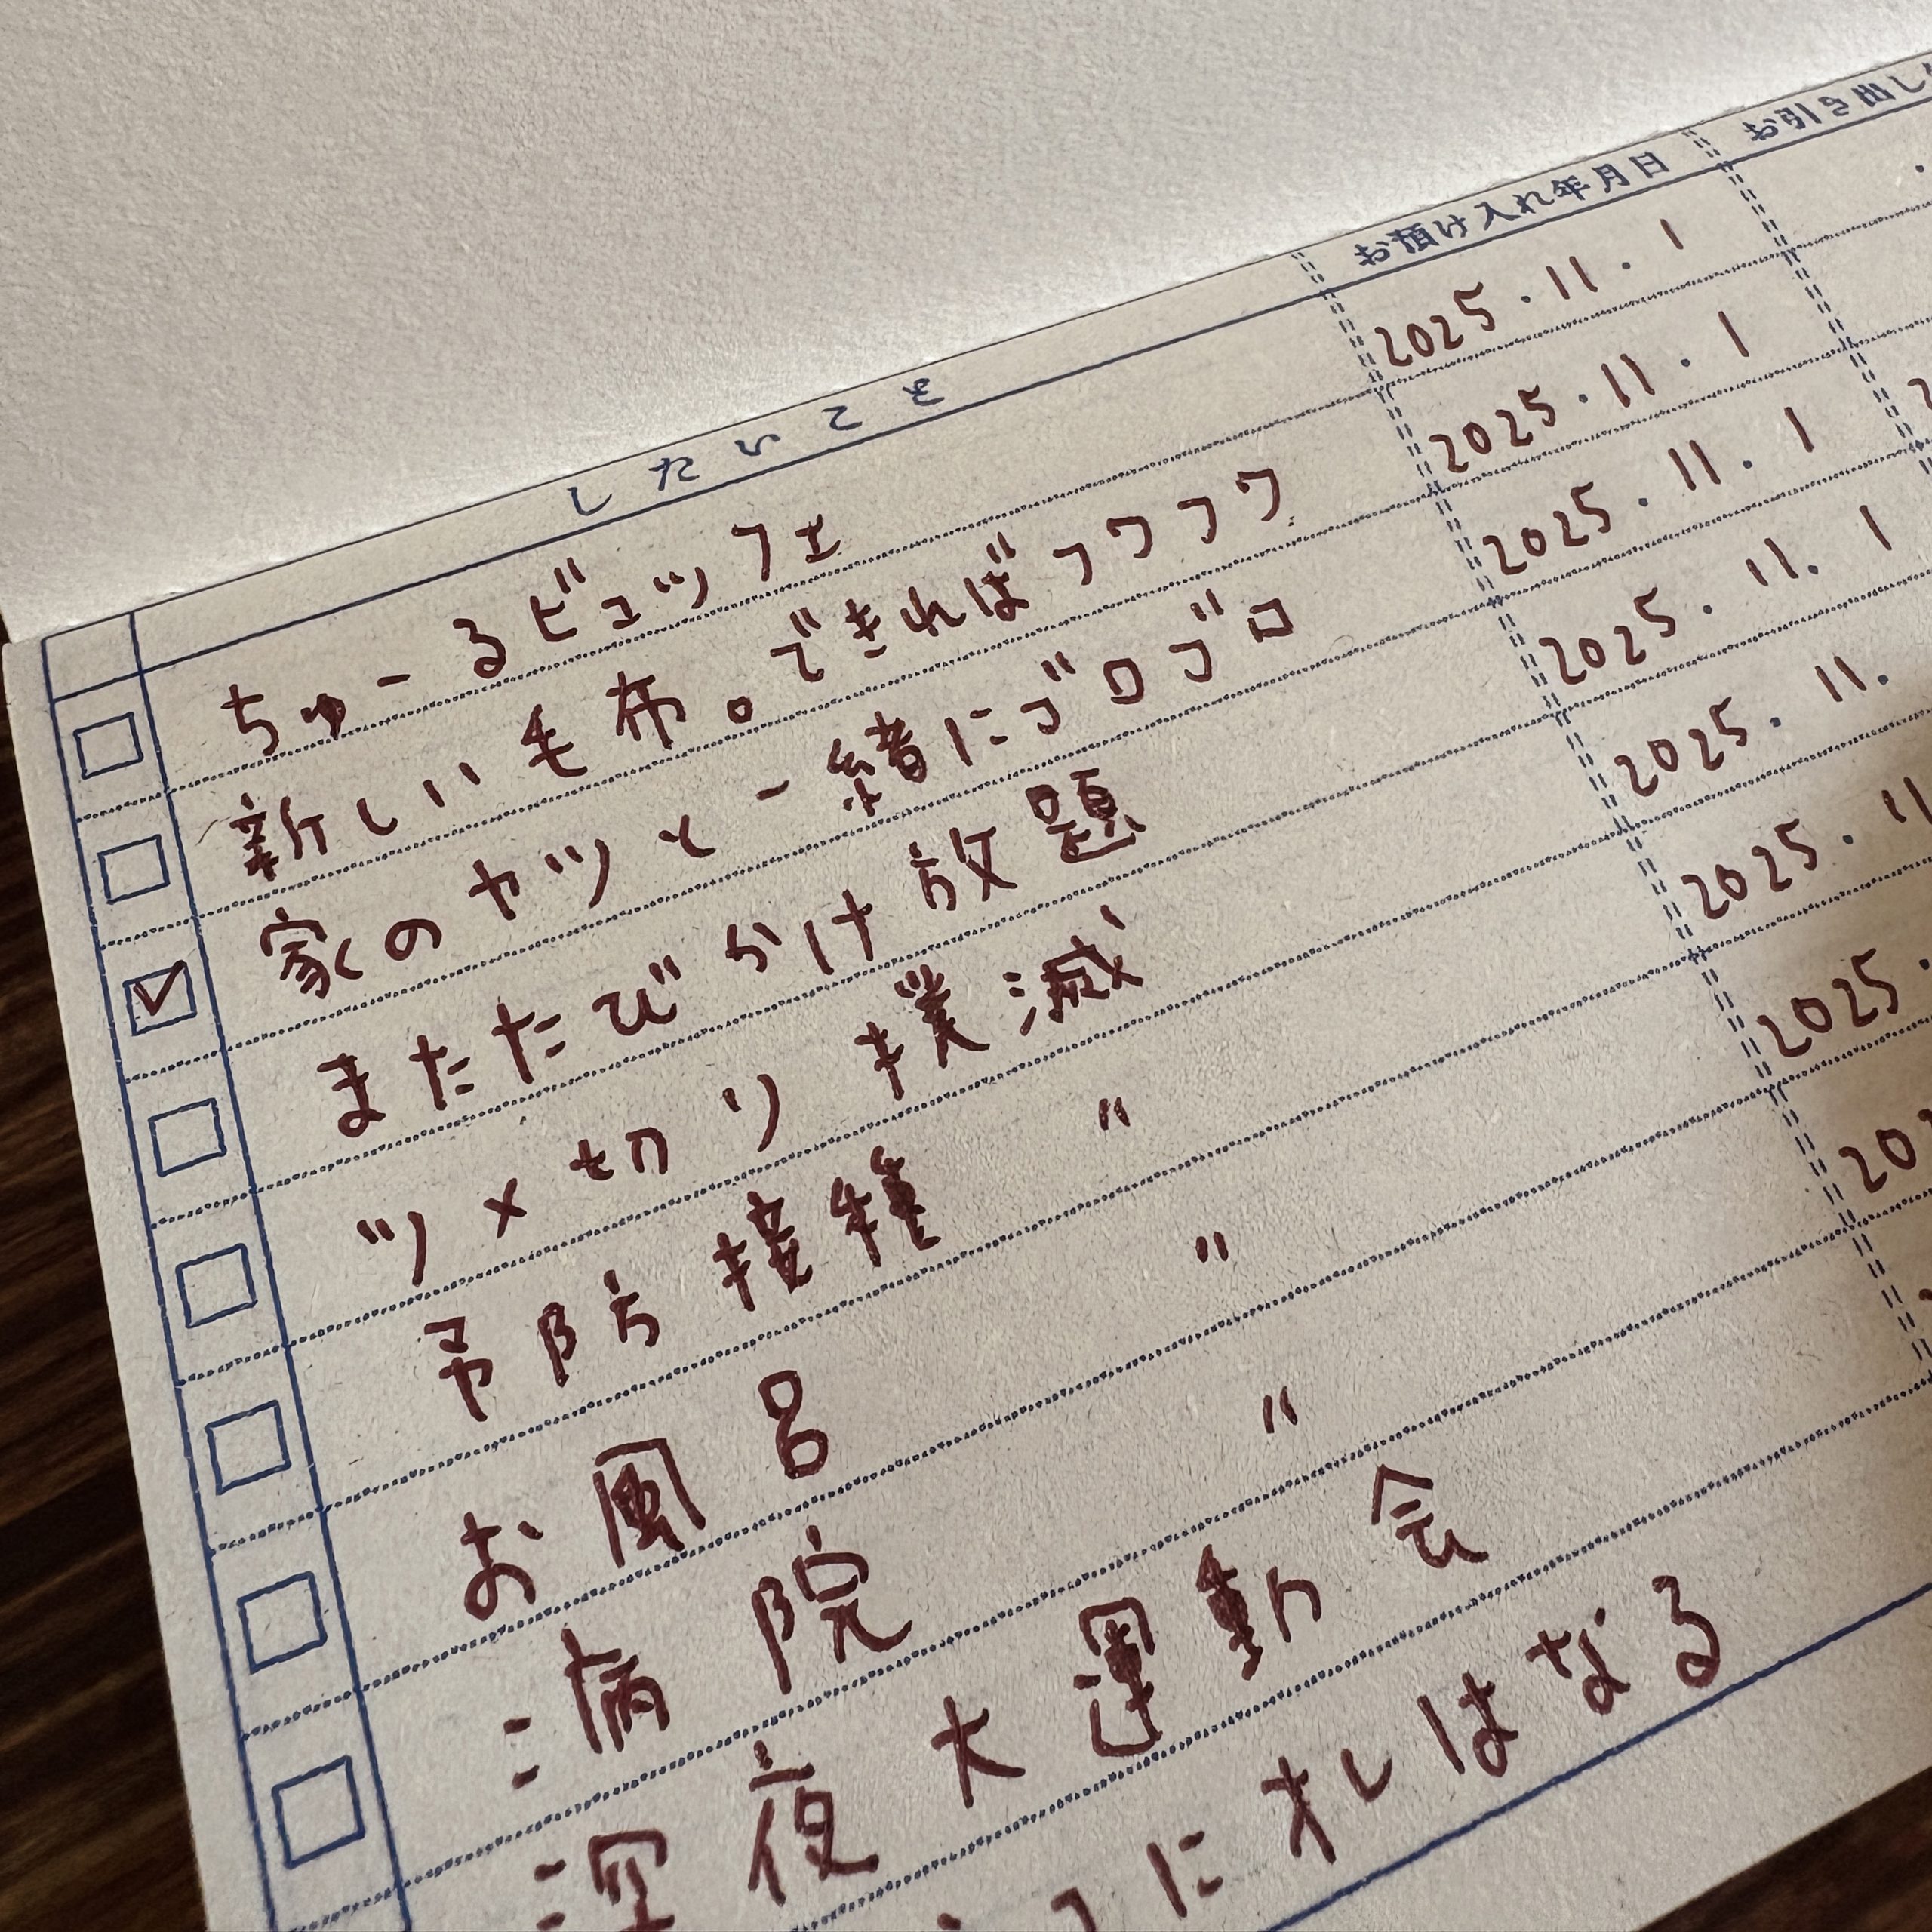 したいこと お預け入れ年月日 お引き出し
ちゅーるビュッフェ 2025.11.1
新しい毛布。できればフワフワ 2025.11.1
家のヤツと一緒にゴロゴロ 2025.11.1
またたびかけ放題 2025.11.1
ツメ切り撲滅 2025.11.
予防接種 〃 2025.11
お風呂 〃 2025.
病院 〃 202
深夜大運動会
にオレはなる